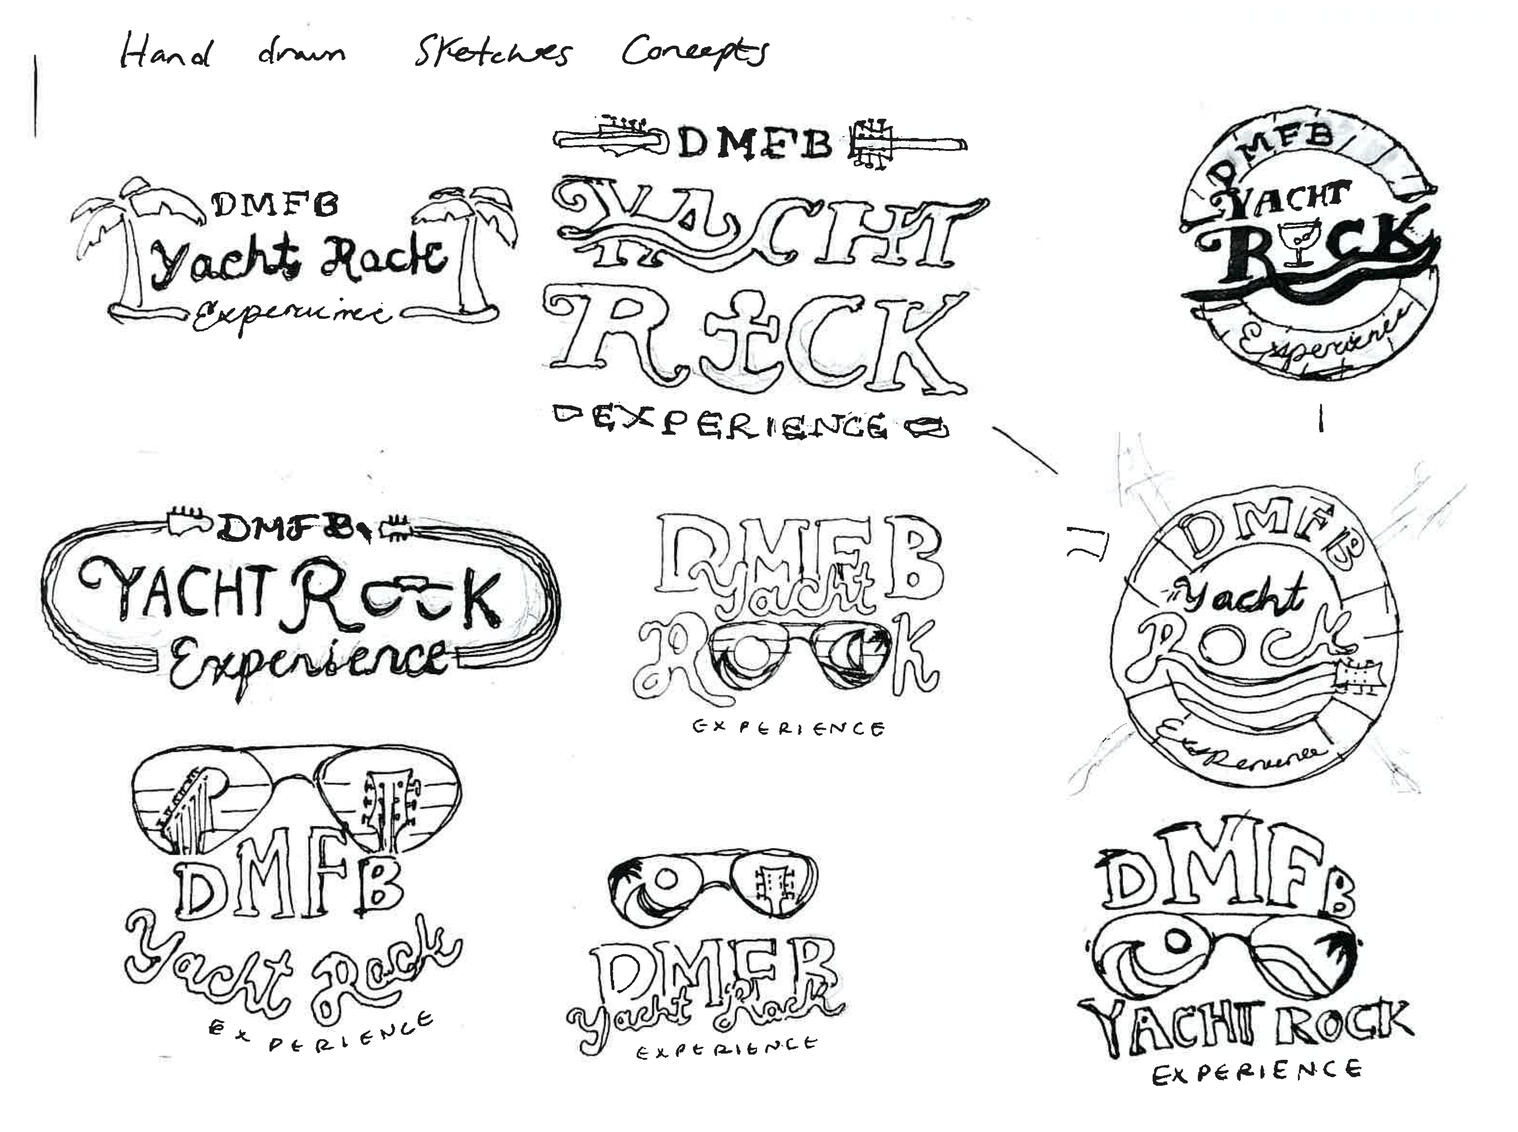 Hand drawn Sketches Concepts
DMFB
Yacht Rock
Experience
DMFB
YACHT
ROCK
EXPERIENCE
DMFB
YACHT
ROCK
Experience
DMFB
YACHT ROCK
Experience
DMFB
Yacht
ROCK
EXPERIENCE
DMFB
Yacht
ROCK
Experience
DMFB
Yacht Rock
EXPERIENCE
DMFB
Yacht Rock
EXPERIENCE
DMFB
YACHT ROCK
EXPERIENCE